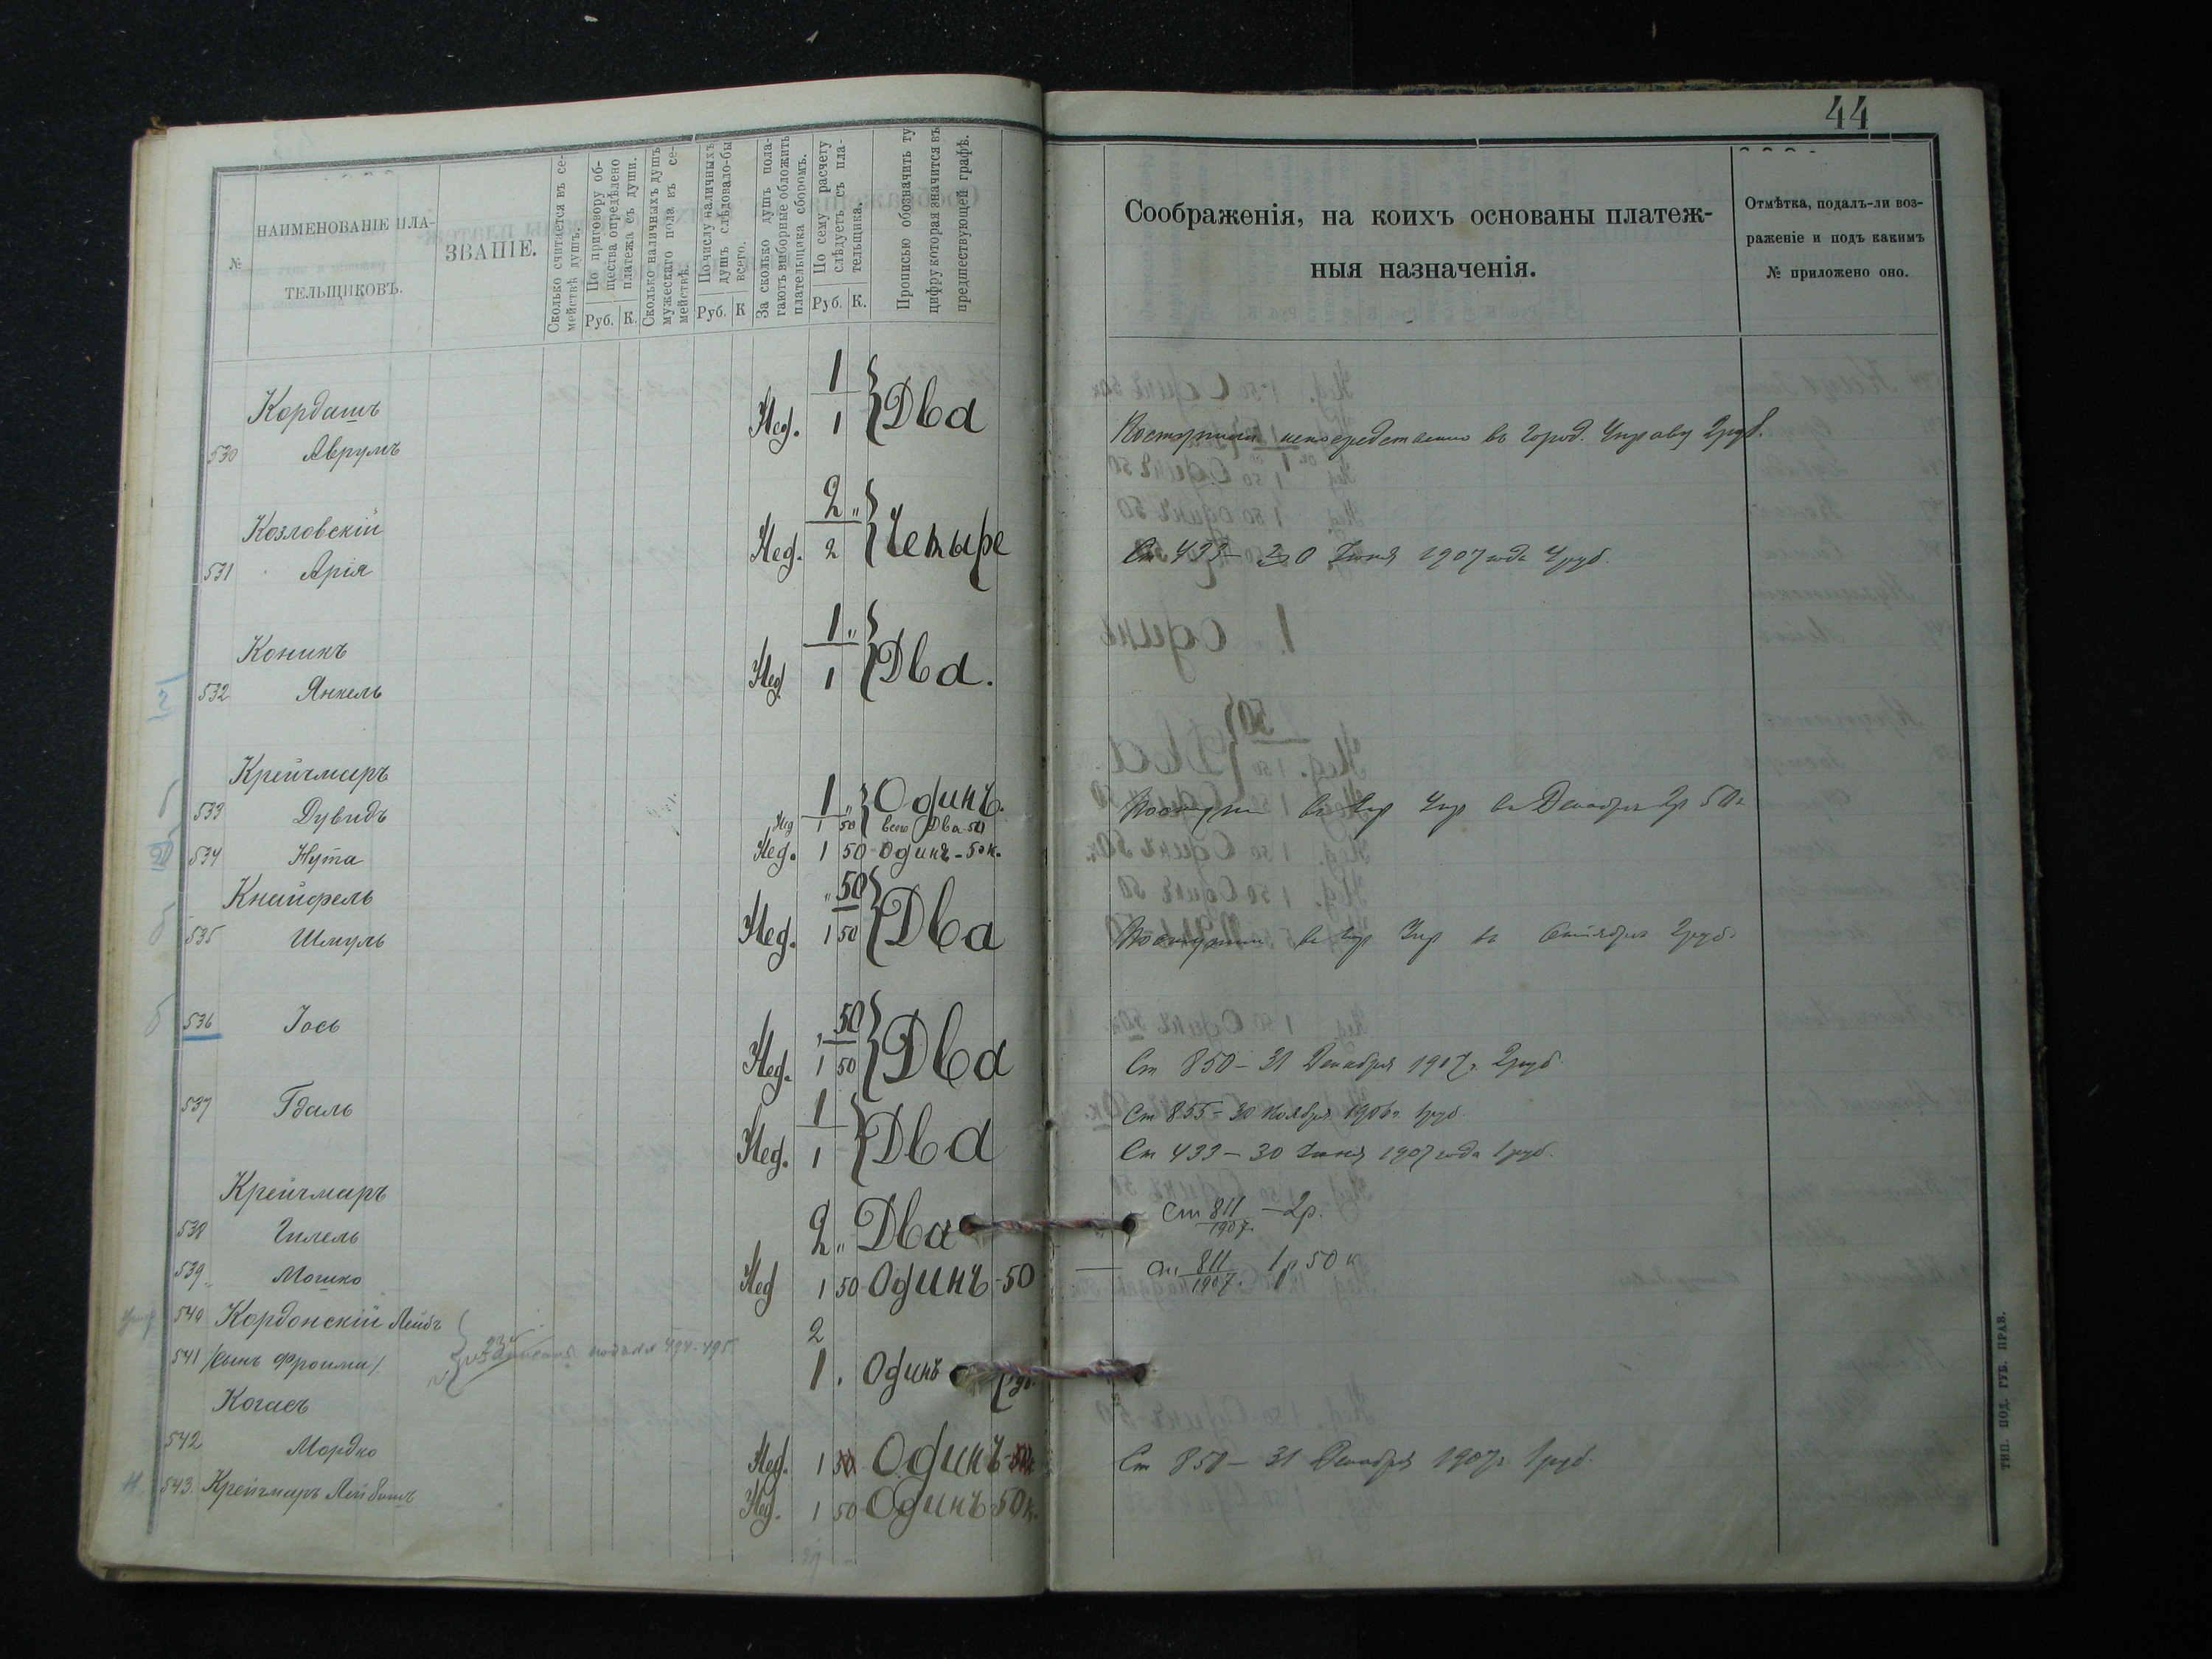 44
№
НАИМЕНОВАНІЕ ПЛА-
ТЕЛЬЩИКОВЪ.
ЗВАНІЕ.
Сколько считается въ се-
мействѣ душъ.
По приговору об-
щества опредѣлено
платежа съ души.
Руб. К.
Сколько наличныхъ душъ
мужескаго пола въ се-
мействѣ.
По числу наличныхъ
душъ слѣдовало-бы
всего.
Руб. К
За сколько душъ пола-
гаютъ выборные обложить
плательщика сборомъ.
По сему расчету
слѣдуетъ съ пла-
тельщика.
Руб. К.
Прописью обозначить ту
цифру которая значится въ
предшествующей графѣ.
Соображенія, на коихъ основаны платеж-
ныя назначенія.
Отмѣтка, подалъ-ли воз-
раженіе и подъ какимъ
№ приложено оно.
Кордашъ 1
530 Аврумъ Нед. 1 Два
въ Город. Управу 2руб.
Козловскій 2 "
531 Арія Нед. 2 Четыре
Ст 433 — 30 Іюня 1907 года 4руб.
Коникъ 1 "
532 Янкель Нед 1 Два.
Крейчмаръ
533 Дувидъ 1 " Одинъ.
Нед 1 50 всего Два-50
2р 50к
534 Нута Нед. 1 50 Одинъ-50к.
Кнайфель " 50
535 Шмуль Нед. 1 50 Два
2руб.
536 Іось 50
Нед. 1 50 Два
Ст 850 — 31 Декабря 1907г. 2руб.
537 Гдаль 1
Нед. 1 Два
Ст 855 — 30 Ноября 1906г. 1руб.
Ст 433 — 30 Іюня 1907 года 1руб.
Крейчмаръ
538 Гилель 2 " Два
Ст 811/1907. — 2р.
539 Мошко Нед 1 50 Одинъ-50
Ст 811/1907. 1р 50к
540 Кордонскій Лейбъ 2
541 /сынъ Фроима/ 1 . Одинъ руб.
494-495
Когасъ
542 Мордко Нед. 1 50 Одинъ-50к
Ст 850 — 31 Декабря 1907г. 1руб.
543. Крейчмаръ Лейбишъ Нед. 1 50 Одинъ 50к.
ТИП. ПОД. ГУБ. ПРАВ.